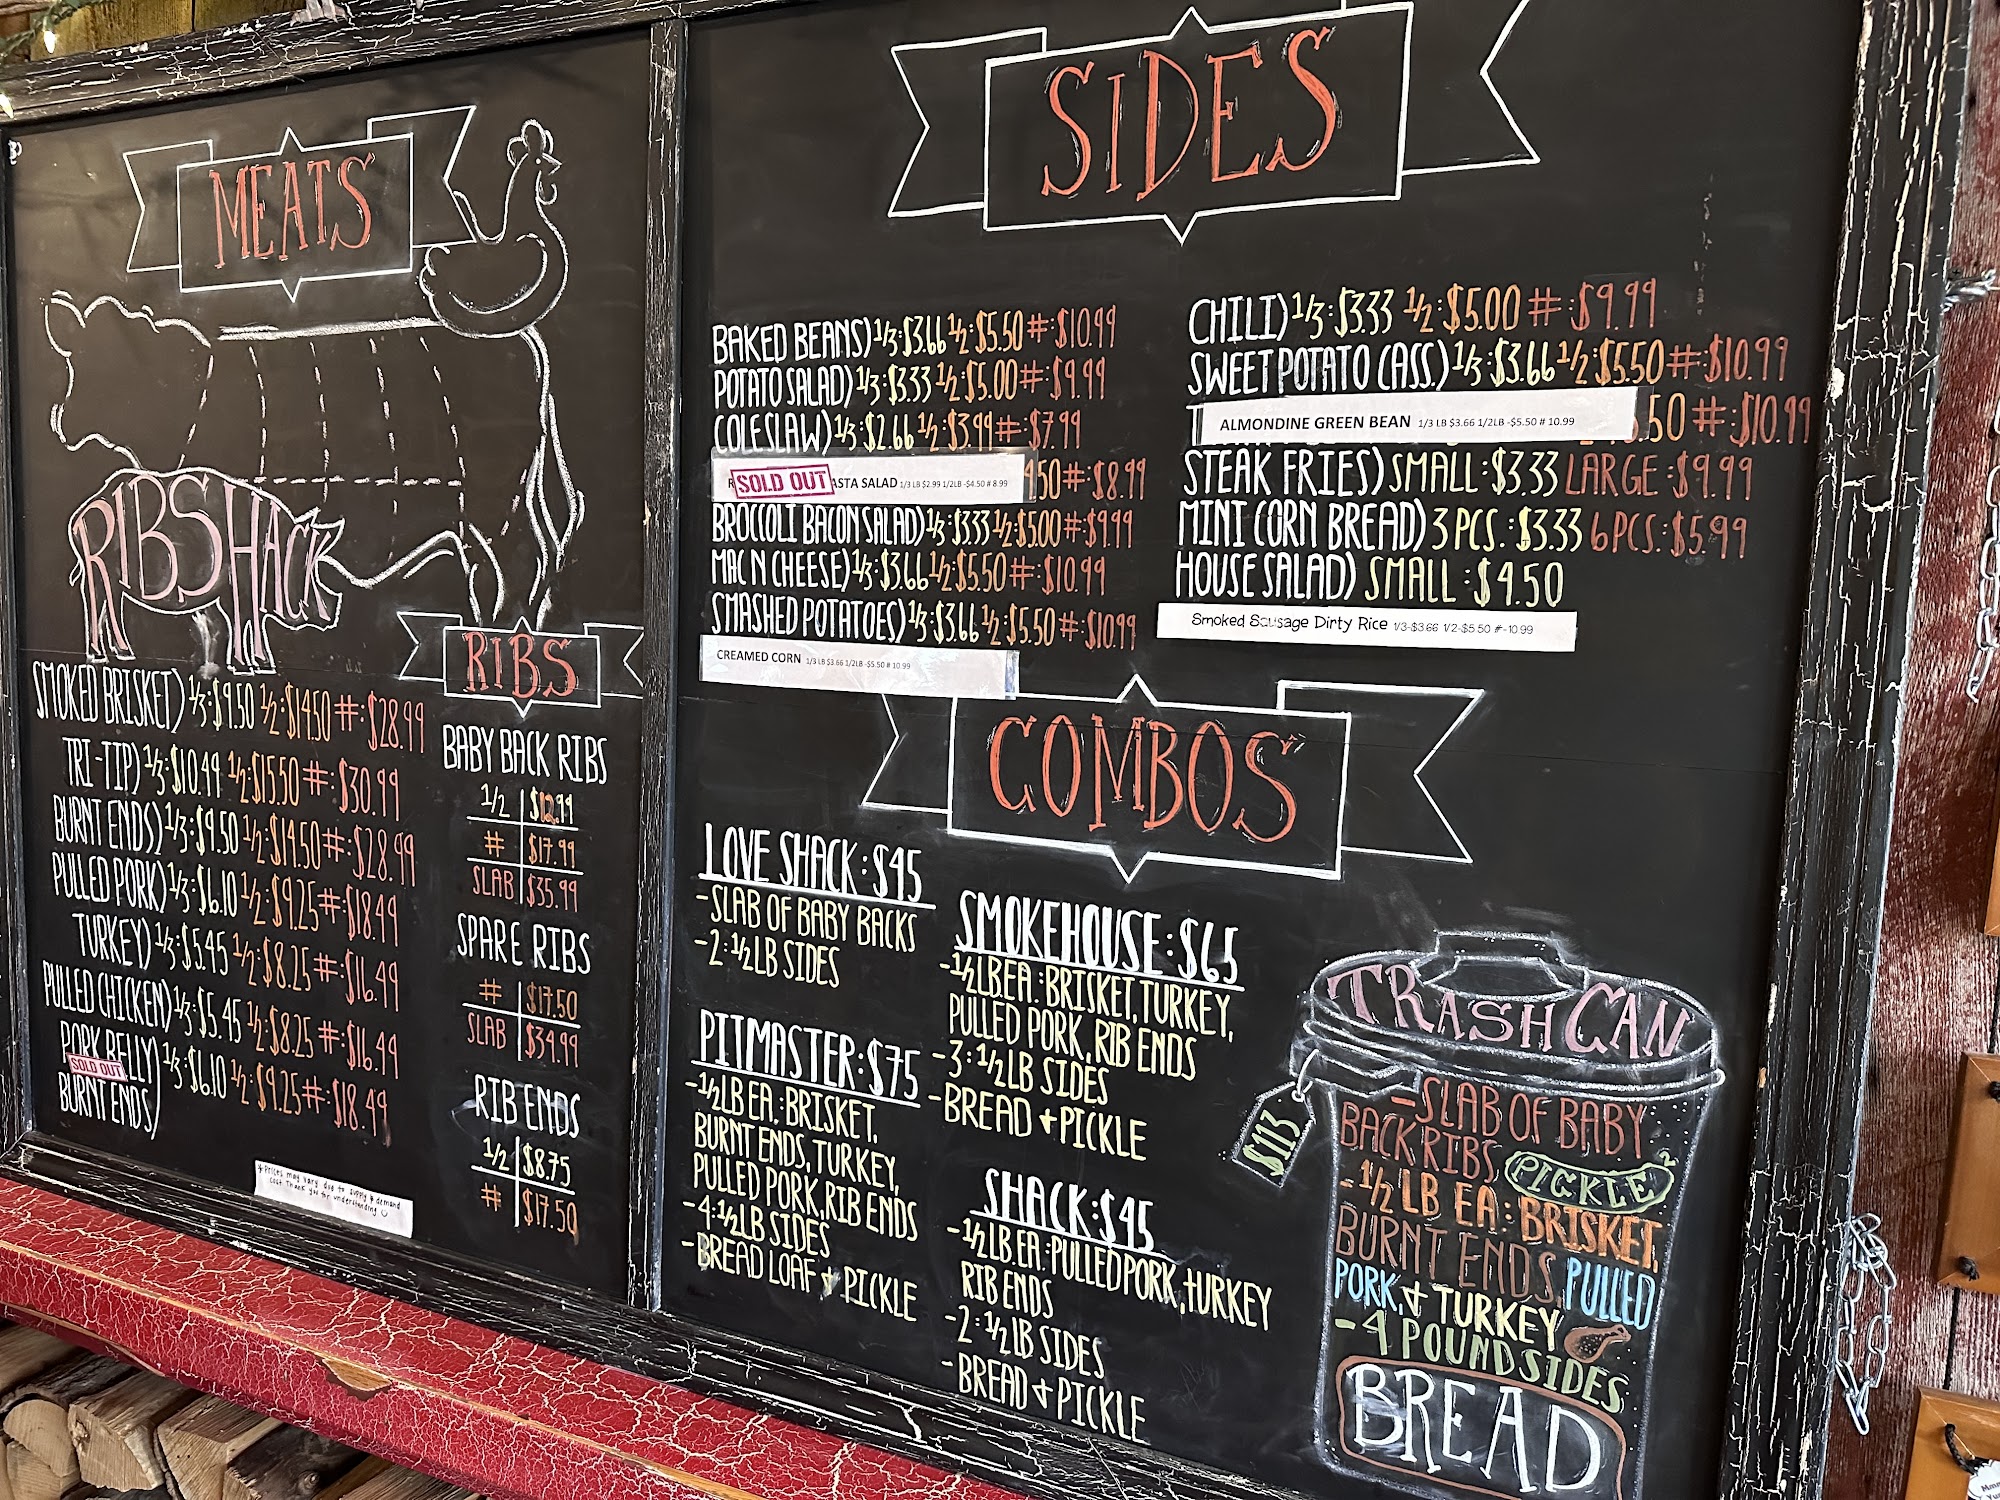 MEATS
RIBSHACK
SMOKED BRISKET) 1/3:$9.50 1/2:$14.50 #:$28.99
TRI-TIP) 1/3:$10.49 1/2:$15.50 #:$30.99
BURNT ENDS) 1/3:$9.50 1/2:$14.50 #:$28.99
PULLED PORK) 1/3:$6.10 1/2:$9.25 #:$18.49
TURKEY) 1/3:$5.45 1/2:$8.25 #:$16.49
PULLED CHICKEN) 1/3:$5.45 1/2:$8.25 #:$16.49
PORK BELLY) 1/3:$6.10 1/2:$9.25 #:$18.49
SOLD OUT
BURNT ENDS)
*Prices may vary due to supply & demand
cost. Thank you for understanding
RIBS
BABY BACK RIBS
1/2 $12.99
# $17.99
SLAB $35.99
SPARE RIBS
# $17.50
SLAB $34.99
RIB ENDS
1/2 $8.75
# $17.50
SIDES
BAKED BEANS) 1/3:$3.66 1/2:$5.50 #:$10.99
POTATO SALAD) 1/3:$3.33 1/2:$5.00 #:$9.99
COLESLAW) 1/3:$2.66 1/2:$3.99 #:$7.99
SOLD OUT ASTA SALAD 1/3 LB $2.99 1/2LB -$4.50 # 8.99 .50 #:$8.99
BROCCOLI BACON SALAD) 1/3:$3.33 1/2:$5.00 #:$9.99
MAC N CHEESE) 1/3:$3.66 1/2:$5.50 #:$10.99
SMASHED POTATOES) 1/3:$3.66 1/2:$5.50 #:$10.99
CREAMED CORN 1/3 LB $3.66 1/2LB -$5.50 # 10.99
CHILI) 1/3:$3.33 1/2:$5.00 #:$9.99
SWEET POTATO (ASS.) 1/3:$3.66 1/2:$5.50 #:$10.99
ALMONDINE GREEN BEAN 1/3 LB $3.66 1/2LB -$5.50 # 10.99 .50 #:$10.99
STEAK FRIES) SMALL:$3.33 LARGE:$9.99
MINI CORN BREAD) 3 PCS.:$3.33 6 PCS.:$5.99
HOUSE SALAD) SMALL:$4.50
Smoked Sausage Dirty Rice 1/3-$3.66 1/2-$5.50 #-10.99
COMBOS
LOVE SHACK:$45
-SLAB OF BABY BACKS
-2:1/2LB SIDES
PITMASTER:$75
-1/2LB EA.:BRISKET,
BURNT ENDS, TURKEY,
PULLED PORK, RIB ENDS
-4:1/2LB SIDES
-BREAD LOAF & PICKLE
SMOKEHOUSE:$65
-1/2LB EA.:BRISKET, TURKEY,
PULLED PORK, RIB ENDS
-3:1/2LB SIDES
-BREAD & PICKLE
SHACK:$45
-1/2LB EA.:PULLED PORK, TURKEY
RIB ENDS
-2:1/2LB SIDES
-BREAD & PICKLE
TRASH CAN
$113
-SLAB OF BABY
BACK RIBS, PICKLE
-1/2 LB EA: BRISKET,
BURNT ENDS, PULLED
PORK, & TURKEY
-4 POUND SIDES
BREAD